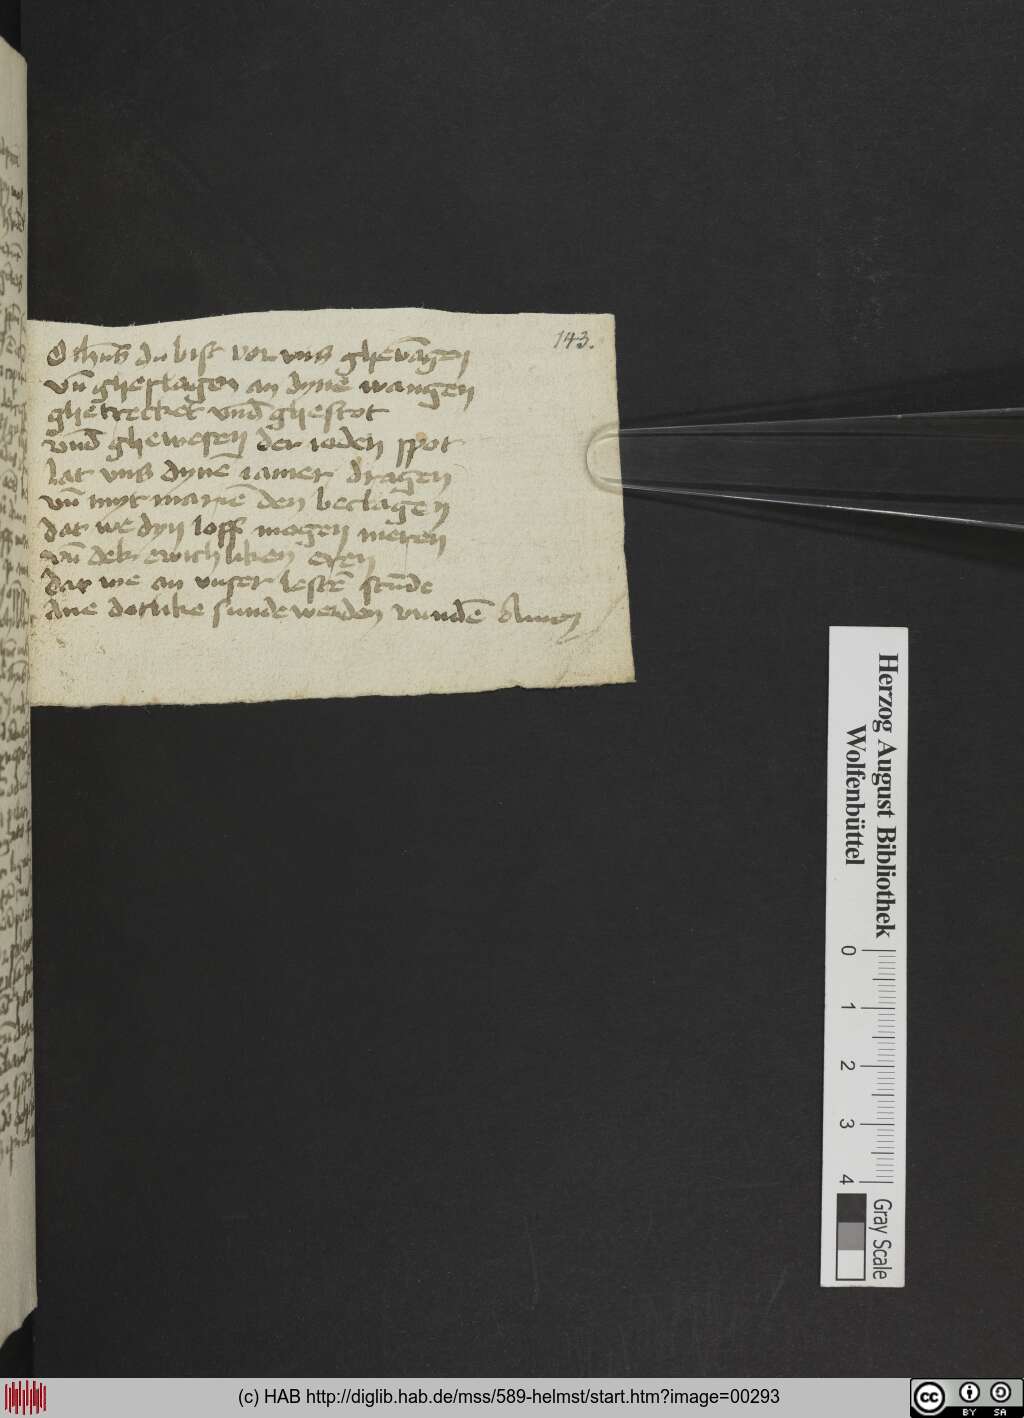 143.
O ihūs du bist vor vns ghevāgen
vn̄ gheslagen an dyne wangen
ghetrecket vnd̄ ghestot
vnd̄ ghewesen der ioden spot
lat vns dynē iamer dragen
vn̄ myt mariē den beclagen
dat we dyn loff mogen meren
vn̄ dek ewichliken eren
dat we an vnser lestē stūde
Ane dotlike sunde werden vundē Amen
Herzog August Bibliothek
Wolfenbüttel
0 1 2 3 4
Gray Scale
(c) HAB http://diglib.hab.de/mss/589-helmst/start.htm?image=00293
cc BY SA